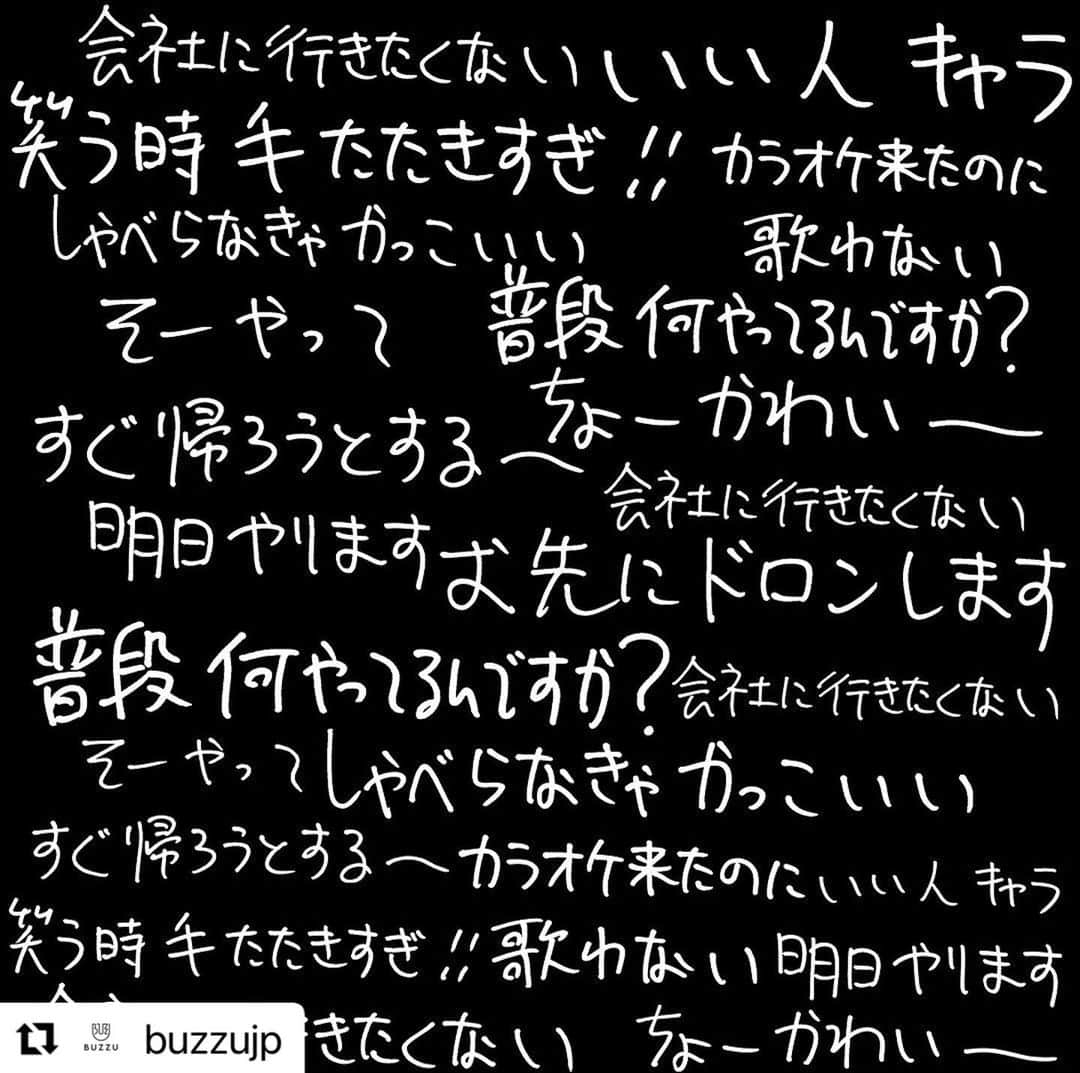 会社に行きたくない いい人 キャラ
笑う時 手 たたきすぎ!! カラオケ来たのに
しゃべらなきゃ かっこいい 歌わない
そーやって 普段 何やってるんですか?
すぐ帰ろうとする〜 ちょーかわいー
会社に行きたくない
明日やります お先にドロンします
普段 何やってるんですか? 会社に行きたくない
そーやって しゃべらなきゃ かっこいい
すぐ帰ろうとする〜 カラオケ来たのに いい人 キャラ
笑う時 手 たたきすぎ!! 歌わない 明日やります
きたくない ちょーかわいー
buzzujp
BUZZU